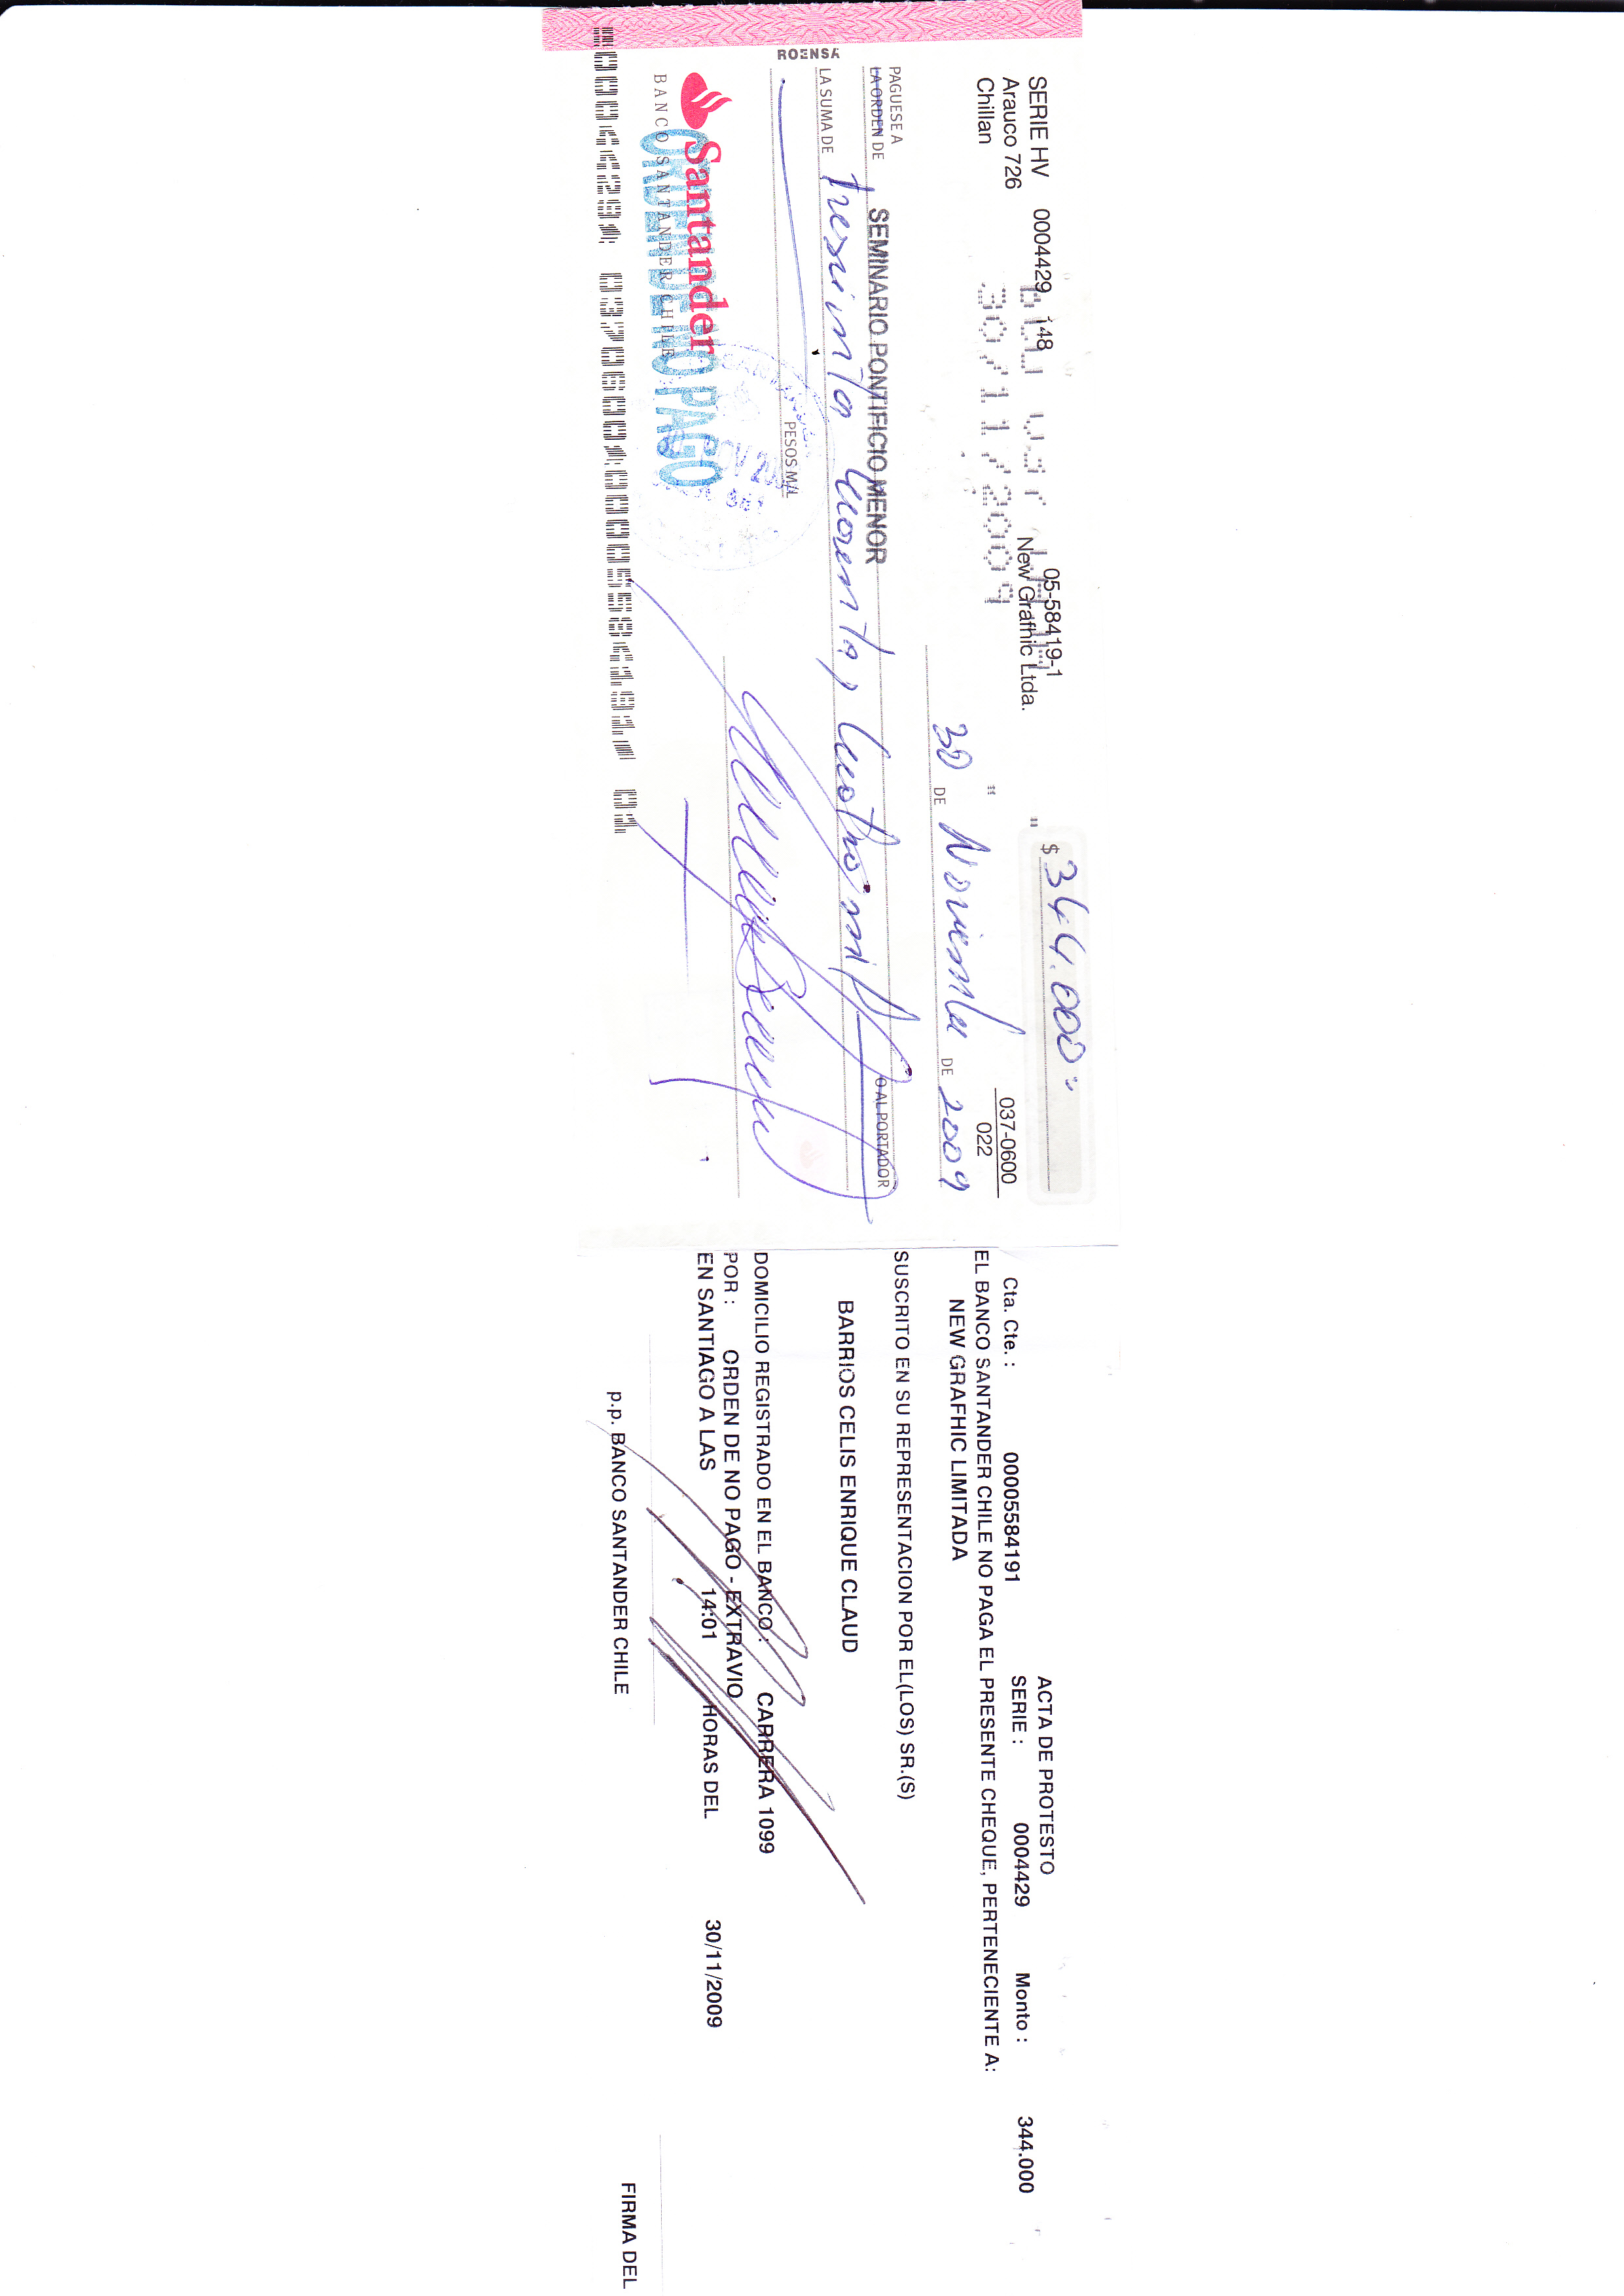 SERIE HV 0004429 148
Arauco 726
Chillan
05-58419-1
New Grafhic Ltda.
30/11/2009
$ 344.000.-
037-0600
022
30 DE Noviembre DE 2009
PAGUESE A
LA ORDEN DE SEMINARIO PONTIFICIO MENOR O AL PORTADOR
LA SUMA DE Trescientos cuarenta y cuatro mil
PESOS M/L
ROENSA
Santander
BANCO SANTANDER CHILE
ORDEN DE NO PAGO
ACTA DE PROTESTO
Cta. Cte. : 00005584191 SERIE : 0004429 Monto : 344.000
EL BANCO SANTANDER CHILE NO PAGA EL PRESENTE CHEQUE, PERTENECIENTE A:
NEW GRAFHIC LIMITADA
SUSCRITO EN SU REPRESENTACION POR EL(LOS) SR.(S)
BARRIOS CELIS ENRIQUE CLAUD
DOMICILIO REGISTRADO EN EL BANCO : CARRERA 1099
POR : ORDEN DE NO PAGO - EXTRAVIO
EN SANTIAGO A LAS 14:01 HORAS DEL 30/11/2009
p.p. BANCO SANTANDER CHILE
FIRMA DEL